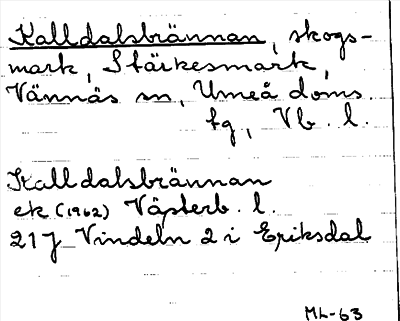 Kalldalsbrännan, skogs-
mark, Stärkesmark,
Vännäs sn, Umeå doms.
tg, Vb. l.
Kalldalsbrännan
ek (1962) Västerb. l.
21J Vindeln 2 i Eriksdal
ML-63